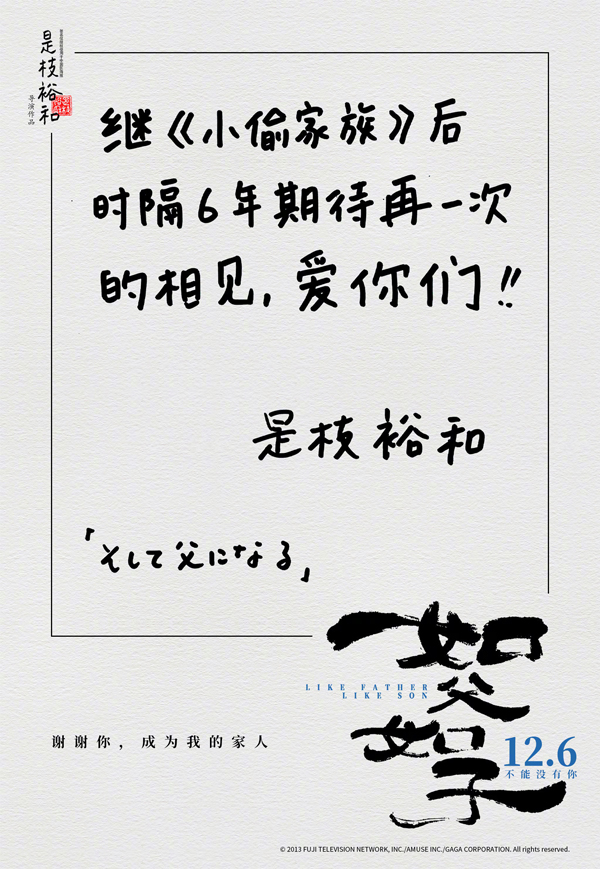 是枝裕和
导演作品
继《小偷家族》后
时隔6年期待再一次
的相见,爱你们!!
是枝裕和
「そして父になる」
如父如子
LIKE FATHER
LIKE SON
谢谢你，成为我的家人
12.6
不能没有你
© 2013 FUJI TELEVISION NETWORK, INC./AMUSE INC./GAGA CORPORATION. All rights reserved.